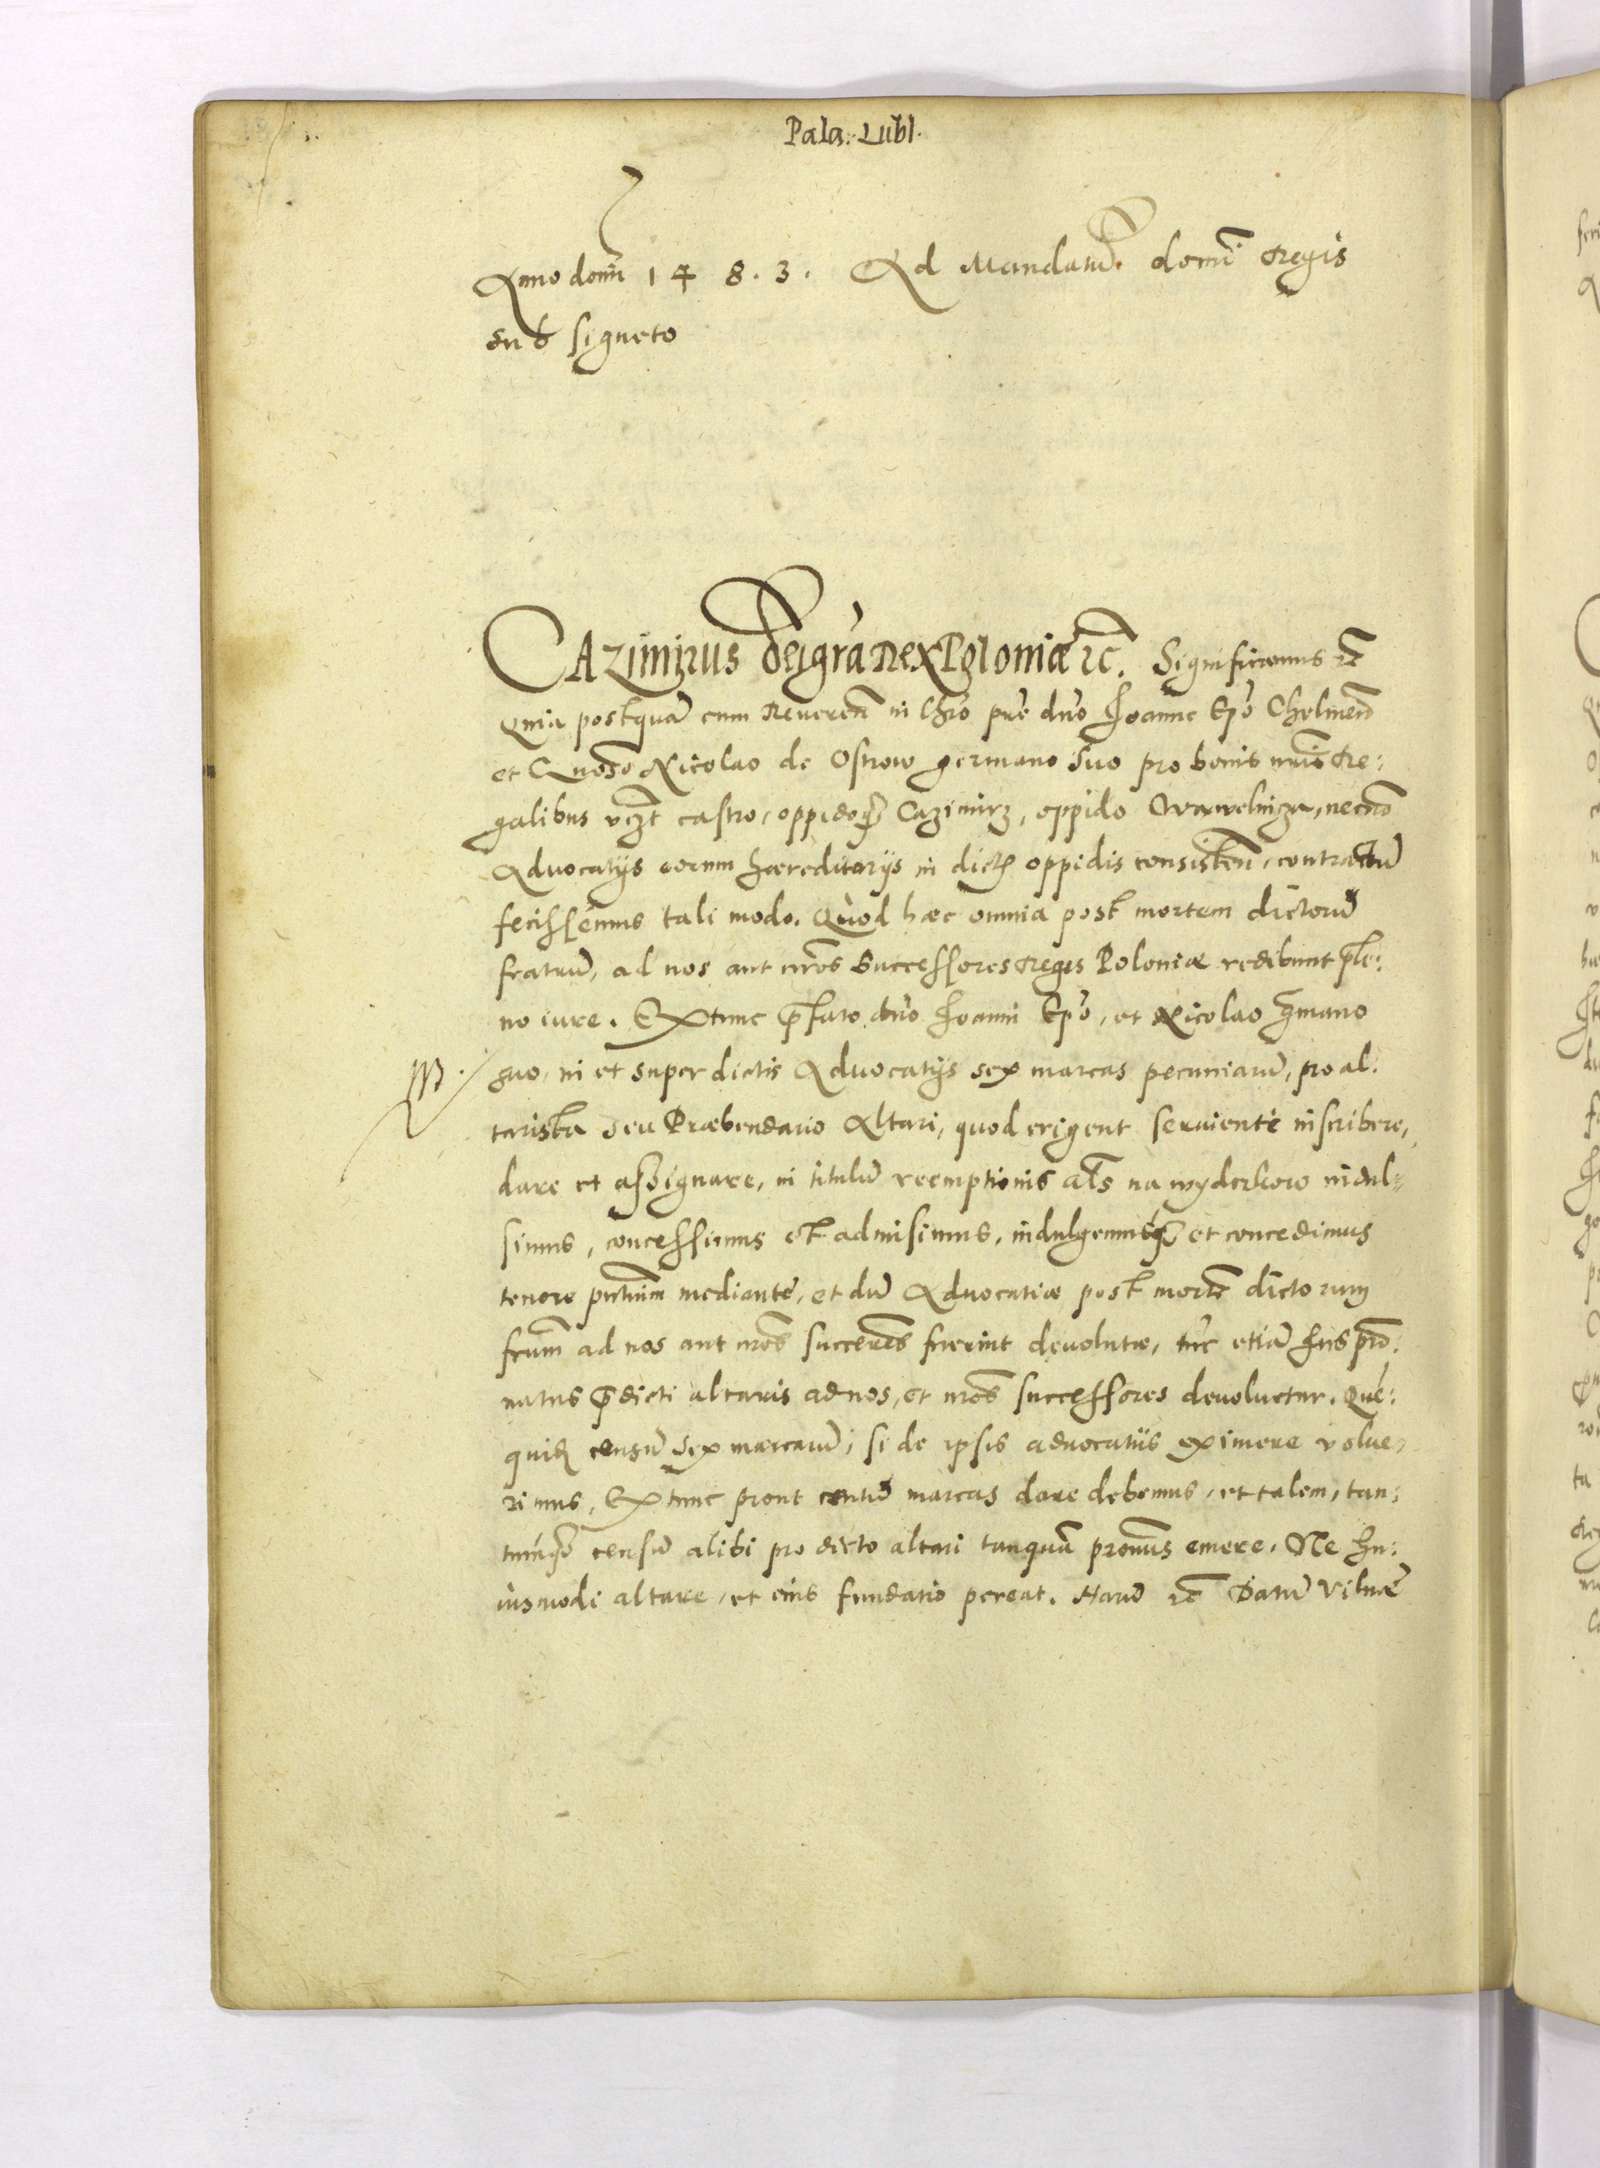 Pala. Lubl.
Anno domi 1 4 8 . 3 . Ad Mandatu. domi Regis
sub signeto
CAzimirus Dei gra Rex Poloniæ &c. Significamus &c
Quia postqua cum Reueren in Chro pre dno Joanne Epo Chelmen
et Gnoso Nicolao de Ostrow germano suo pro bonis nris Re:
galibus vczt castro, oppidoq Cazimirz, oppido Wawelnicza, necno
Aduocatijs eorum hæreditarijs in dictis oppidis consisten, contractu
fecissemus tali modo. Quod hæc omnia post mortem dictoru
fratrum, ad nos aut nros Successores Reges Poloniæ redibunt ple:
no iure. Extunc pfato dno Joanni Epo, et Nicolao gmano
suo, in et super dictis Aduocatijs sex marcas pecuniaru, pro al:
tarista seu Præbendario Altari, quod erigent seruienti inscribere,
dare et assignare, in titulu reemptionis als na wyderkow indul=
simus, concessimus et admisimus, indulgemusq et concedimus
tenore pntium mediante, et dum Aduocatiæ post morte dictorum
frum ad nos aut nros succeres fuerint deuolutæ, tuc etia Jus pro:
natus pdicti altaris ad nos, et nros successores deuoluetur. Que:
quid censu sex marcaru, si de ipsis aduocatiis eximere volue,
rimus, Extunc prout centu marcas dare debemus, et talem, tan:
tumq censu alibi pro dicto altari tanquam pronus emere. Ne hu:
iusmodi altare, et eius fundatio pereat. Haru &c Datu Vilnæ